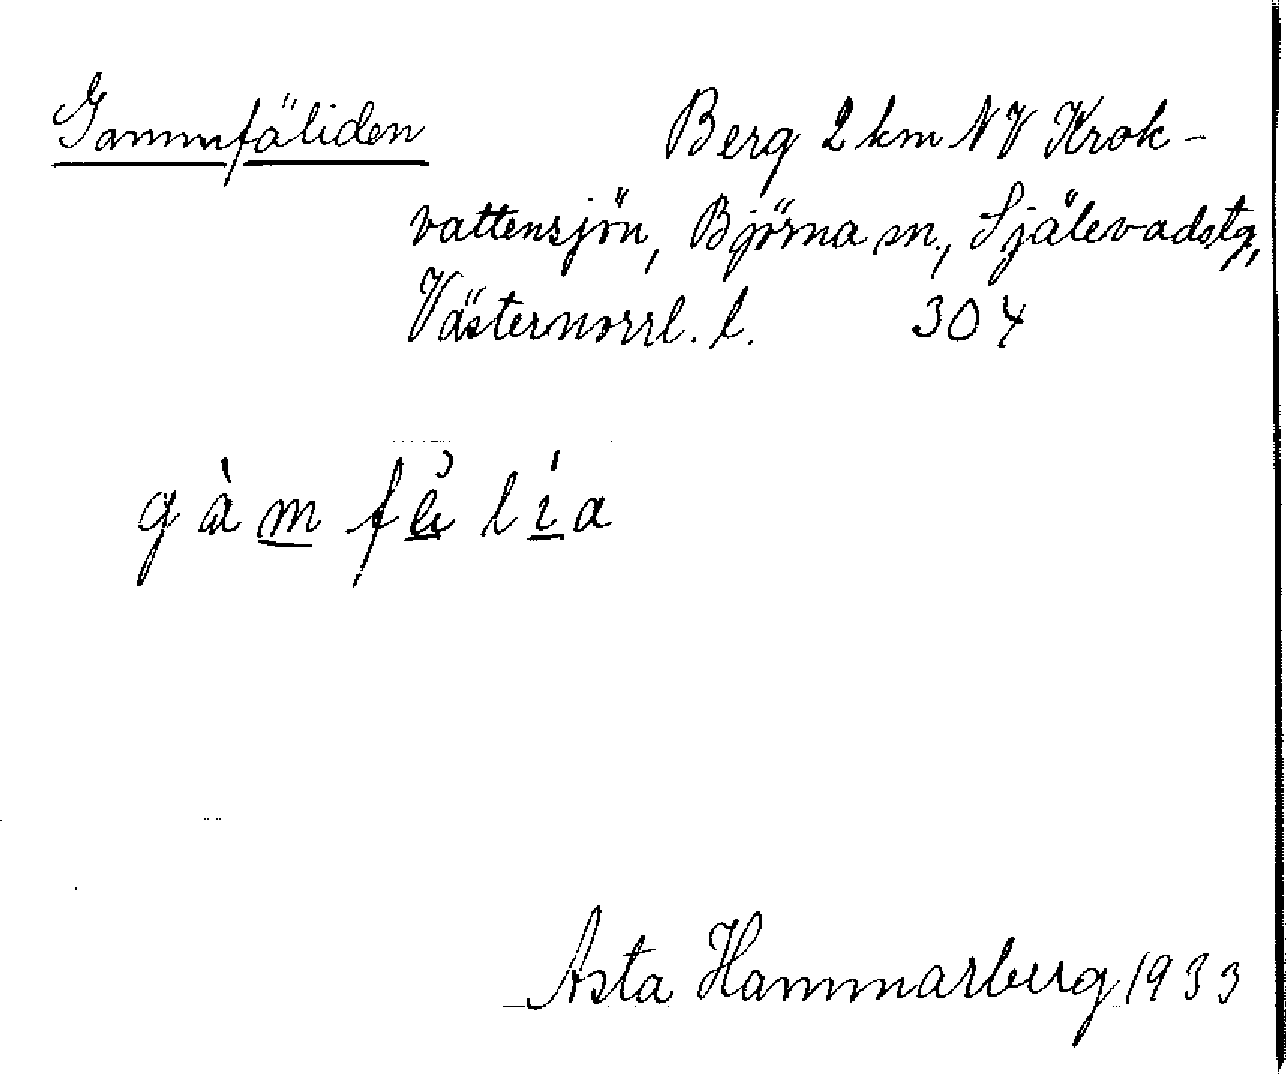 Gammfäliden Berg 2 km NV Krok-
vattensjön, Björna sn., Själevadstg,
Västernorrl. l. 304
gàm fæ̀ lía
Asta Hammarberg 1933